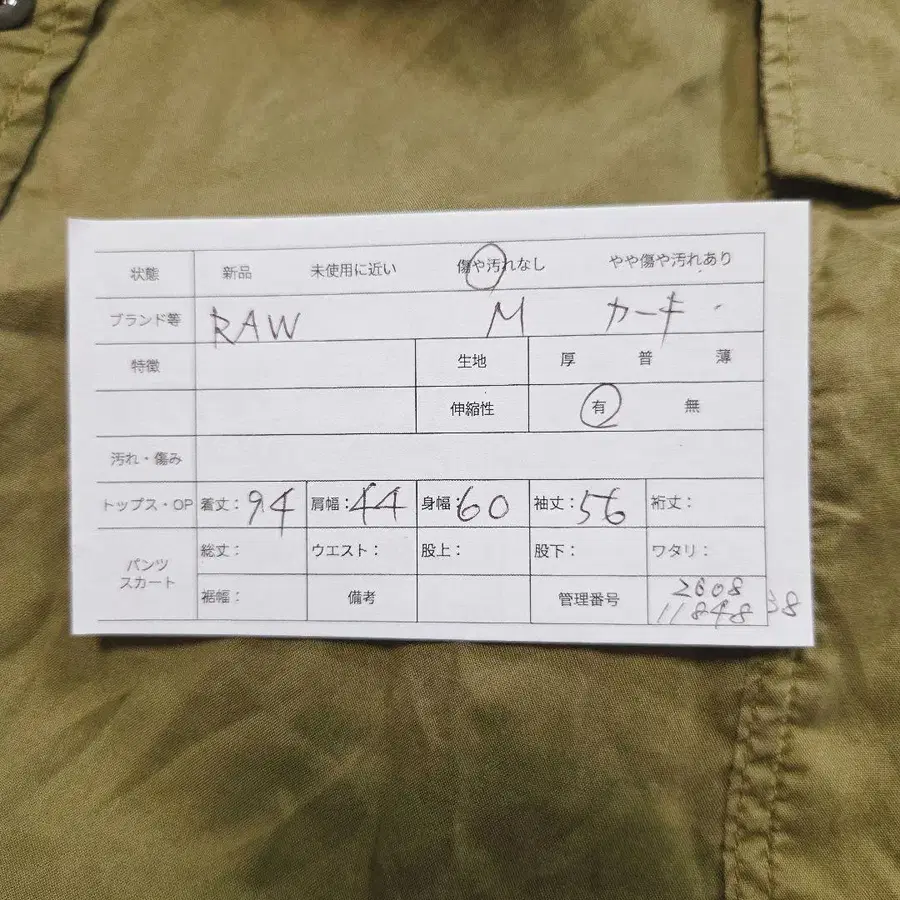 状態 新品 未使用に近い 傷や汚れなし やや傷や汚れあり
ブランド等 RAW M カーキ
特徴 生地 厚 普 薄
伸縮性 有 無
汚れ・傷み
トップス・OP 着丈：94 肩幅：44 身幅：60 袖丈：56 裄丈：
パンツ スカート 総丈： ウエスト： 股上： 股下： ワタリ：
裾幅： 備考 管理番号 2608
11848 38